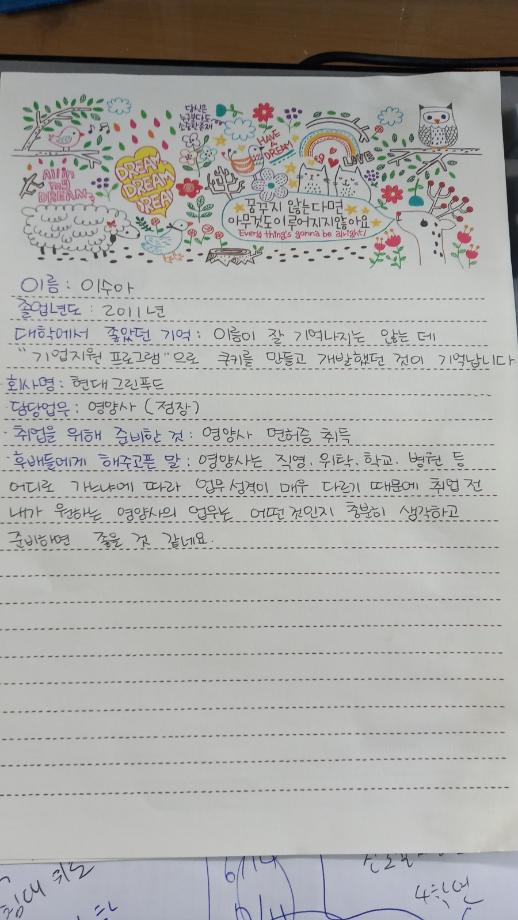 당신은
누구보다도
소중한 존재
HAVE
A
DREAM
LOVE
All in
my
DREAM
DREAM
DREAM
DREAM
꿈꾸지 않는다면
아무것도 이루어지지않아요
Every thing's gonna be alright!
이름 : 이수아
졸업년도 : 2011년
대학에서 좋았던 기억 : 이름이 잘 기억나지는 않는 데
"기업지원 프로그램"으로 쿠키를 만들고 개발했던 것이 기억납니다
회사명 : 현대 그린푸드
담당업무 : 영양사 (점장)
·취업을 위해 준비한 것 : 영양사 면허증 취득
·후배들에게 해주고픈 말 : 영양사는 직영, 위탁, 학교, 병원 등
어디로 가느냐에 따라 업무 성격이 매우 다르기 때문에 취업 전
내가 원하는 영양사의 업무는 어떤 것인지 충분히 생각하고
준비하면 좋을 것 같네요.
6/14
4학년